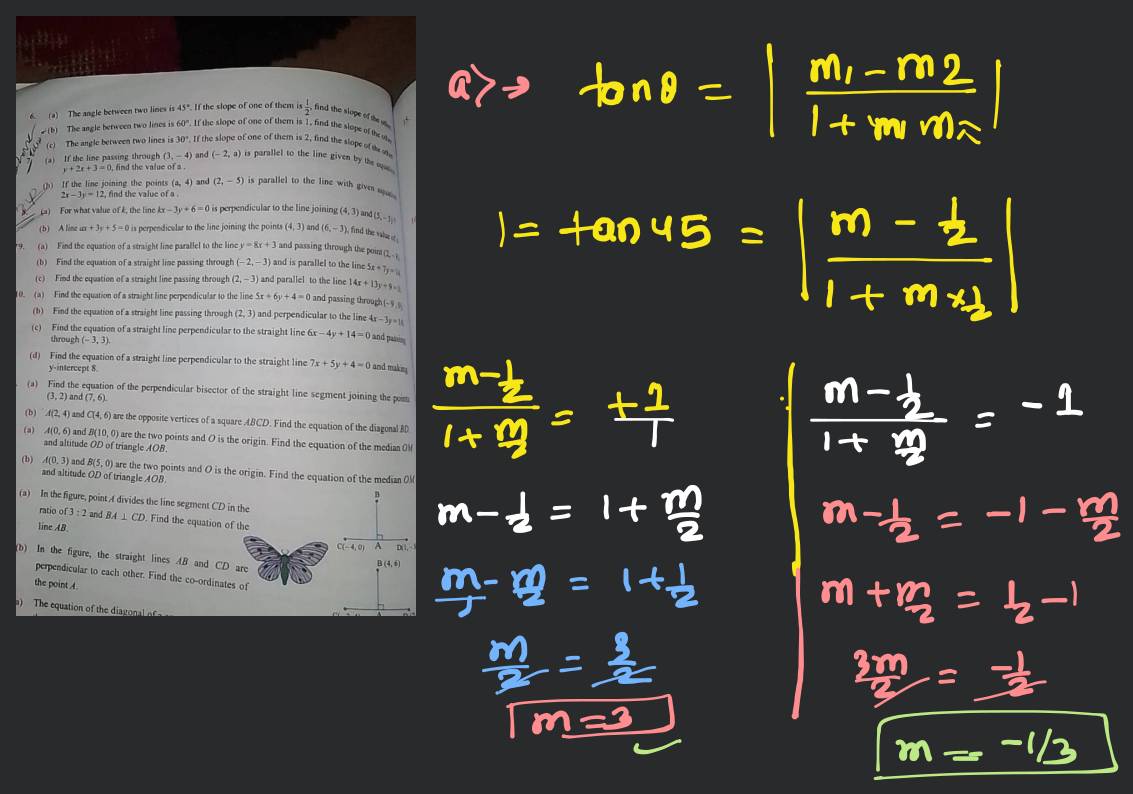 6. (a) The angle between two lines is 45°. If the slope of one of them is 1/2, find the slope of the other.
(b) The angle between two lines is 60°. If the slope of one of them is 1, find the slope of the other.
(c) The angle between two lines is 30°. If the slope of one of them is 2, find the slope of the other
(a) If the line passing through (3, – 4) and (– 2, a) is parallel to the line given by the equation
y + 2x + 3 = 0, find the value of a.
(b) If the line joining the points (a, 4) and (2, – 5) is parallel to the line with given equation
2x – 3y = 12, find the value of a.
8. (a) For what value of k, the line kx – 3y + 6 = 0 is perpendicular to the line joining (4, 3) and (5, – 3)?
(b) A line ax + 3y + 5 = 0 is perpendicular to the line joining the points (4, 3) and (6, – 3), find the value of
9. (a) Find the equation of a straight line parallel to the line y = 8x + 3 and passing through the point (2,
(b) Find the equation of a straight line passing through (– 2, – 3) and is parallel to the line 5x + 7y =
(c) Find the equation of a straight line passing through (2, – 3) and parallel to the line 14x + 13y + 9 =
10. (a) Find the equation of a straight line perpendicular to the line 5x + 6y + 4 = 0 and passing through (– 9,
(b) Find the equation of a straight line passing through (2, 3) and perpendicular to the line 4x – 3y =
(c) Find the equation of a straight line perpendicular to the straight line 6x – 4y + 14 = 0 and passing
through (– 3, 3).
(d) Find the equation of a straight line perpendicular to the straight line 7x + 5y + 4 = 0 and making
y-intercept 8.
(a) Find the equation of the perpendicular bisector of the straight line segment joining the points
(3, 2) and (7, 6).
(b) A(2, 4) and C(4, 6) are the opposite vertices of a square ABCD. Find the equation of the diagonal BD.
(a) A(0, 6) and B(10, 0) are the two points and O is the origin. Find the equation of the median OM
and altitude OD of triangle AOB.
(b) A(0, 3) and B(5, 0) are the two points and O is the origin. Find the equation of the median OM
and altitude OD of triangle AOB.
(a) In the figure, point A divides the line segment CD in the
ratio of 3 : 2 and BA ⊥ CD. Find the equation of the
line AB.
B
C(– 4, 0) A D(1,
(b) In the figure, the straight lines AB and CD are
perpendicular to each other. Find the co-ordinates of
the point A.
B (4, 6)
a) The equation of the diagonal of
a> → tanθ = | (m1 - m2)/(1 + m1 m2) |
1 = tan 45 = | (m - 1/2)/(1 + m × 1/2) |
(m - 1/2)/(1 + m/2) = +1/1
m - 1/2 = 1 + m/2
m/1 - m/2 = 1 + 1/2
m/2 = 3/2
m = 3
(m - 1/2)/(1 + m/2) = -1
m - 1/2 = -1 - m/2
m + m/2 = 1/2 - 1
3m/2 = -1/2
m = -1/3